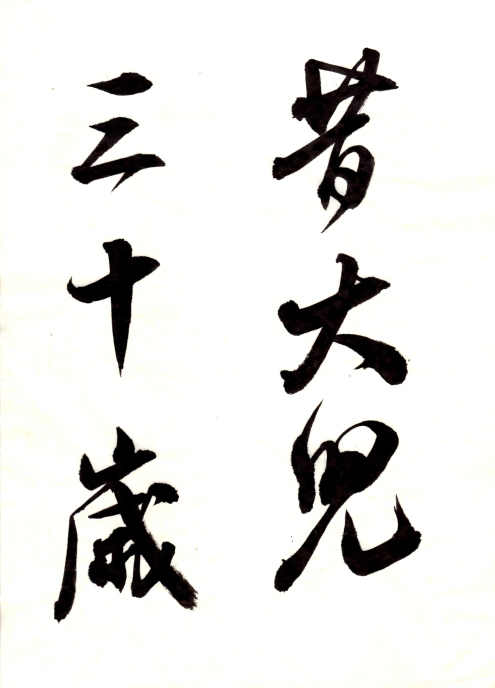 昔大兒
三十歳